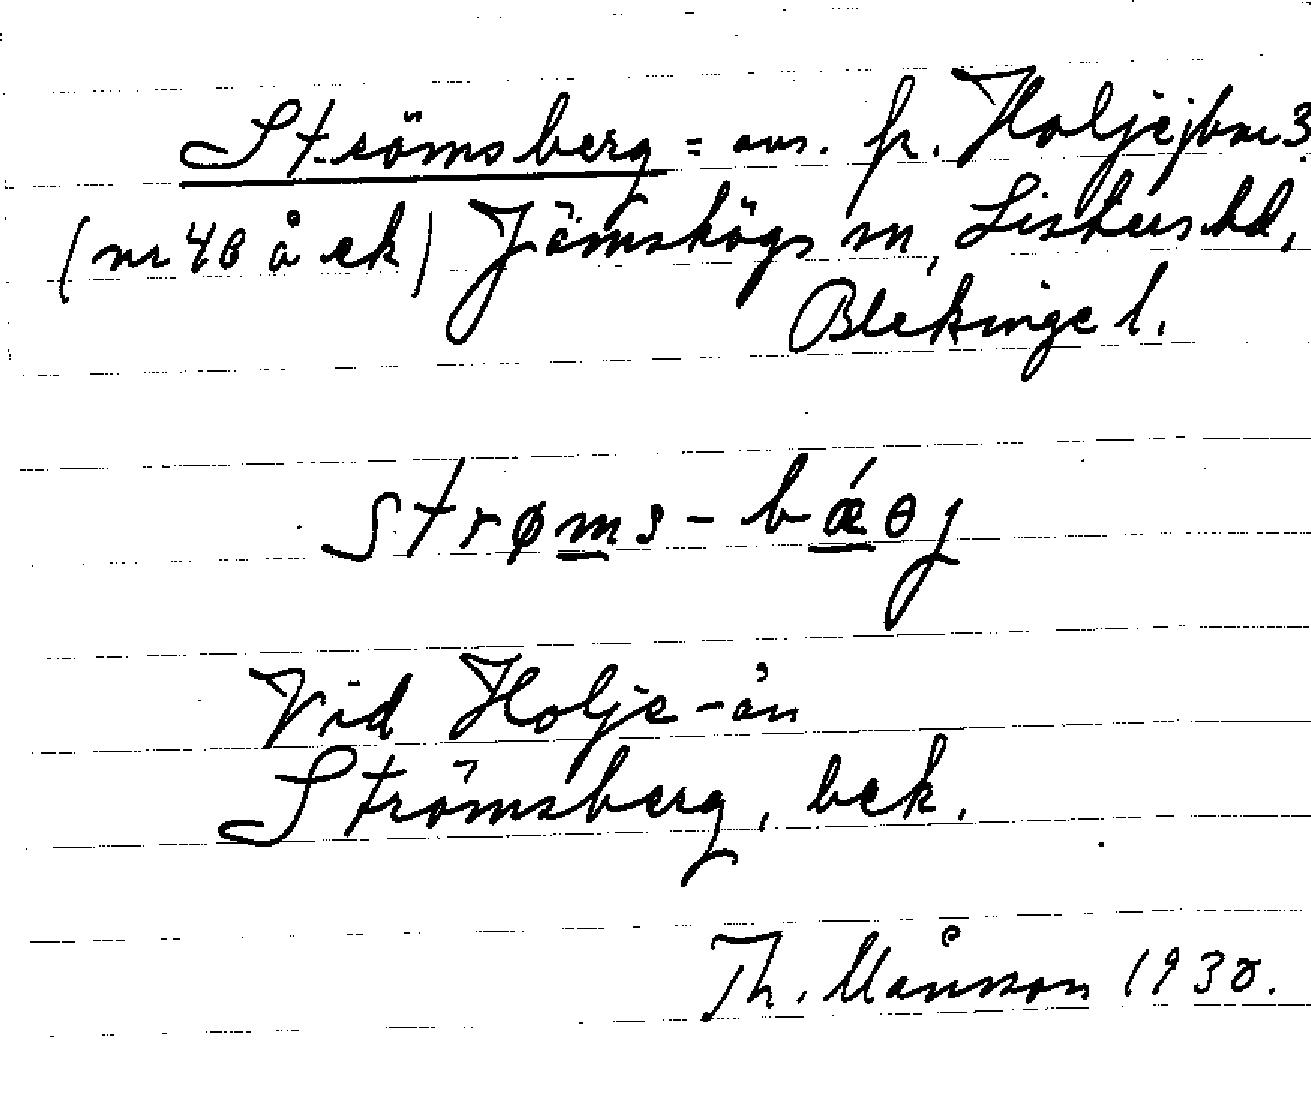 Strömsberg = avs. fr. Holjejbm 3
(nr 48 å ek) Jämshögs sn, Listers hd,
Blekinge l.
strøms-bǽəj
Vid Holje-ån
Strömsberg, bek.
Th. Månsson 1930.